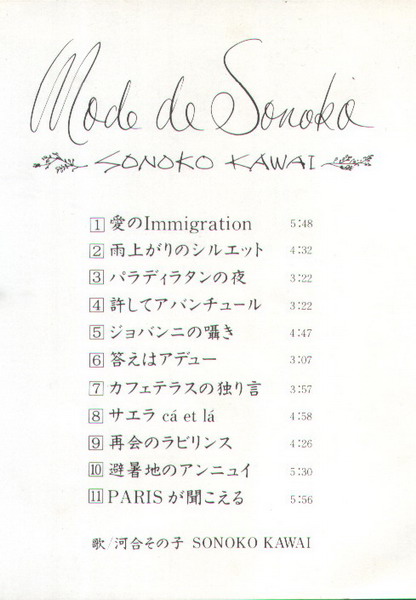 Mode de Sonoko
SONOKO KAWAI
1 愛のImmigration 5:48
2 雨上がりのシルエット 4:32
3 パラディラタンの夜 3:22
4 許してアバンチュール 3:22
5 ジョバンニの囁き 4:47
6 答えはアデュー 3:07
7 カフェテラスの独り言 3:57
8 サエラ cá et lá 4:58
9 再会のラビリンス 4:26
10 避暑地のアンニュイ 5:30
11 PARISが聞こえる 5:56
歌/河合その子 SONOKO KAWAI